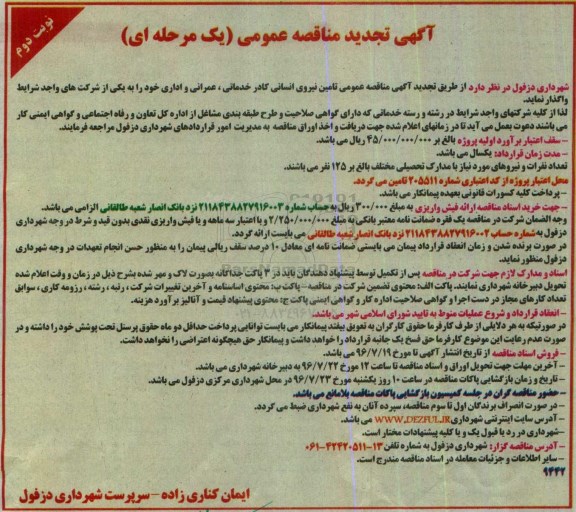 نوبت دوم
آگهی تجدید مناقصه عمومی (یک مرحله ای)
شهرداری دزفول در نظر دارد از طریق تجدید آگهی مناقصه عمومی تامین نیروی انسانی کادر خدماتی ، عمرانی و اداری خود را به یکی از شرکت های واجد شرایط
واگذار نماید.
لذا از کلیه شرکتهای واجد شرایط در رشته و رسته خدماتی که دارای گواهی صلاحیت و طرح طبقه بندی مشاغل از اداره کل تعاون و رفاه اجتماعی و گواهی ایمنی کار
می باشند دعوت بعمل می آید تا در زمانهای اعلام شده جهت دریافت و اخذ اوراق مناقصه به مدیریت امور قراردادهای شهرداری دزفول مراجعه فرمایند.
- سقف اعتبار برآورد اولیه پروژه بالغ بر ۴۵/۰۰۰/۰۰۰/۰۰۰ ریال می باشد.
- مدت زمان قرارداد: یکسال می باشد.
تعداد نفرات و نیروهای مورد نیاز با مدارک تحصیلی مختلف بالغ بر ۱۲۵ نفر می باشند
محل اعتبار پروژه از کد اعتباری شماره ۲۰۵۵۱۱ تامین می گردد.
- پرداخت کلیه کسورات قانونی بعهده پیمانکار می باشد.
- جهت خرید اسناد مناقصه ارائه فیش واریزی به مبلغ ۳۰۰/۰۰۰ ریال به حساب شماره ۲۱۱۸۴۳۸۸۲۷۹۱۶۰۰۳ نزد بانک انصار شعبه طالقانی الزامی می باشد.
وجه الضمان شرکت در مناقصه یک فقره ضمانت نامه معتبر بانکی به مبلغ ۲/۲۵۰/۰۰۰/۰۰۰ و با اعتبار سه ماهه و یا فیش واریزی نقدی بدون قید و شرط در وجه شهرداری
دزفول به شماره حساب ۲۱۱۸۴۳۸۸۲۷۹۱۶۰۰۲ نزد بانک انصار شعبه طالقانی می بایست ارائه گردد.
در صورت برنده شدن و زمان انعقاد قرارداد پیمان می بایستی ضمانت نامه ای معادل ۱۰ درصد سقف ریالی پیمان را به منظور حسن انجام تعهدات در وجه شهرداری
دزفول منظور نماید.
اسناد و مدارک لازم جهت شرکت در مناقصه پس از تکمیل توسط پیشنهاد دهندگان باید در ۳ پاکت جداگانه بصورت لاک و مهر شده بشرح ذیل در زمان و وقت اعلام شده
تحویل دبیرخانه شهرداری نمایند. پاکت الف: محتوی تضمین شرکت در مناقصه - پاکت ب: محتوی اساسنامه و آخرین تغییرات شرکت ، رتبه ، رشته ، رزومه کاری ، سوابق
تعداد کارهای مجاز در دست اجرا و گواهی صلاحیت اداره کار و گواهی ایمنی پاکت ج: محتوی پیشنهاد قیمت و آنالیز برآورد هزینه.
- انعقاد قرارداد و شروع عملیات منوط به تایید شورای اسلامی شهر می باشد.
در صورتیکه به هر دلایلی از طرف کارفرما حقوق کارگران به تعویق بیفتد پیمانکار می بایست توانایی پرداخت حداقل دو ماه حقوق پرسنل تحت پوشش خود را داشته و در
صورت عدم رعایت این موضوع کارفرما حق فسخ یک جانبه قرارداد را خواهد داشت و پیمانکار حق هیچگونه اعتراضی را نخواهد داشت.
- فروش اسناد مناقصه از تاریخ انتشار آگهی تا مورخ ۹۶/۷/۱۹ می باشد.
- آخرین مهلت جهت تحویل اوراق و اسناد مناقصه تا ساعت ۱۲ مورخ ۹۶/۷/۲۲ به دبیرخانه شهرداری می باشد.
- تاریخ و زمان بازگشایی پاکات مناقصه در ساعت ۱۰ روز یکشنبه مورخ ۹۶/۷/۲۳ در محل شهرداری مرکزی دزفول می باشد.
- حضور مناقصه گران در جلسه کمیسیون بازگشایی پاکات مناقصه بلامانع می باشد.
- در صورت انصراف برندگان اول تا سوم مناقصه، سپرده آنان به نفع شهرداری ضبط می گردد.
- آدرس سایت اینترنتی شهرداری WWW.DEZFUL.IR می باشد.
- شهرداری در رد یا قبول یک و یا کلیه پیشنهادات مختار است.
- آدرس مناقصه گزار: شهرداری دزفول به شماره تلفن ۱۳-۴۲۴۲۰۵۱۱-۰۶۱
- سایر اطلاعات و جزئیات معامله در اسناد مناقصه مندرج است.
۹۴۴۲
ایمان کناری زاده - سرپرست شهرداری دزفول